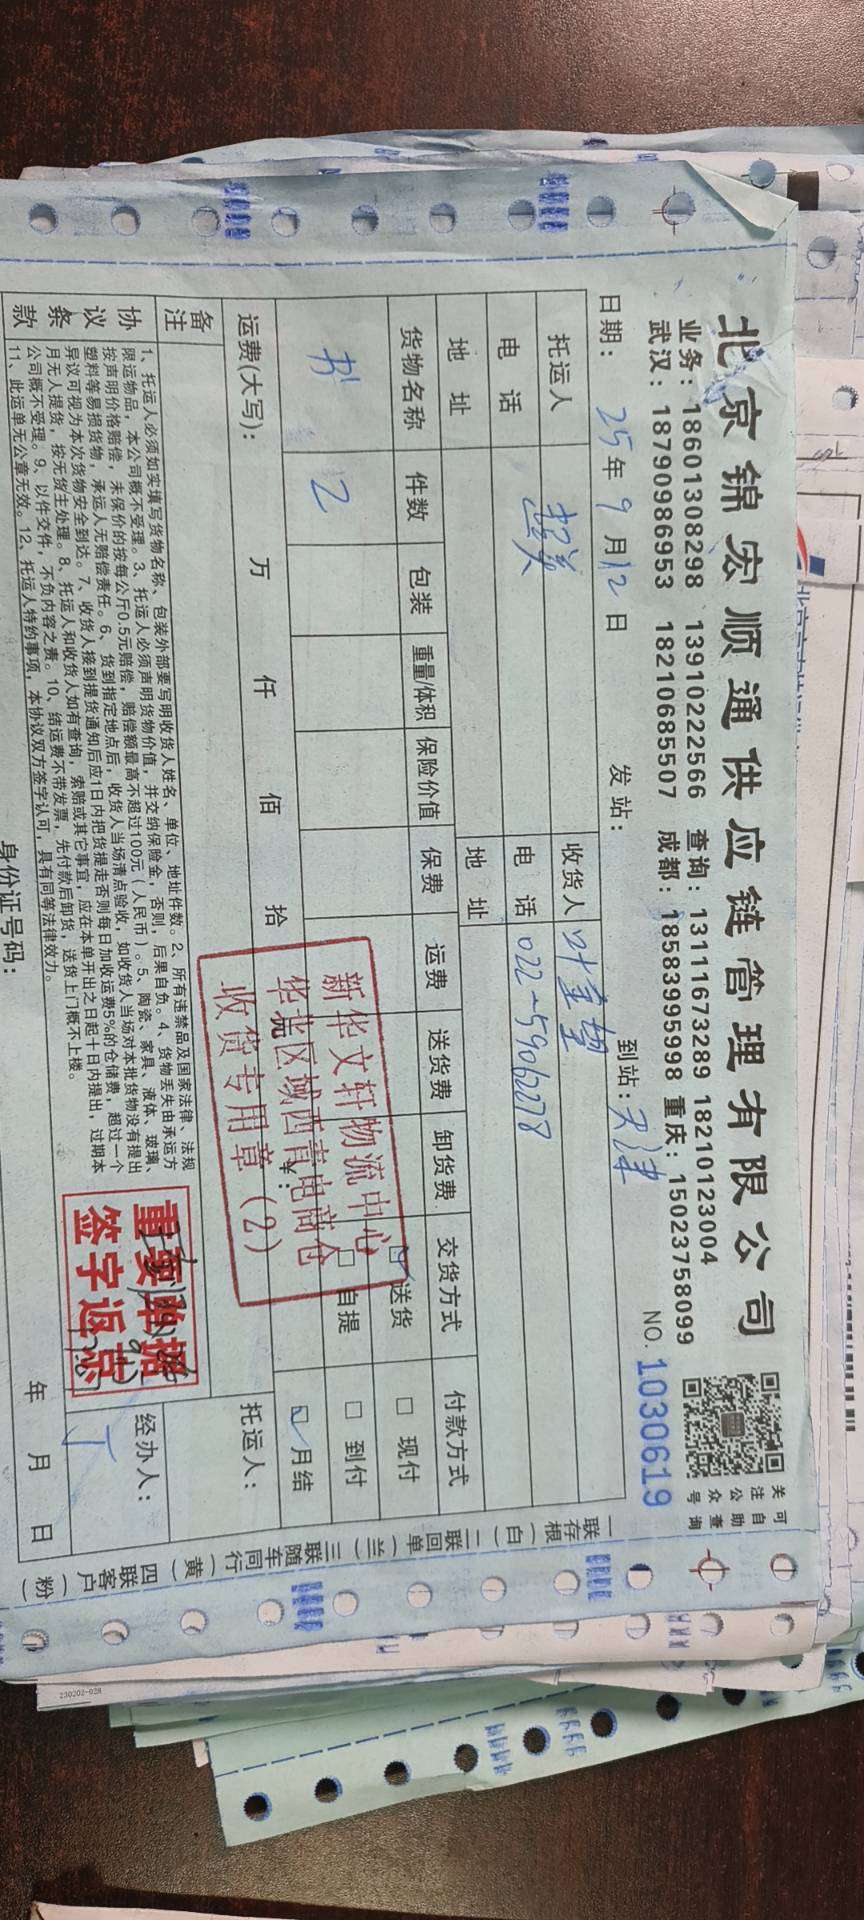 北京锦宏顺通供应链管理有限公司
关注公众号
可自助查询
业务：18601308298 13910222566 查询：13111673289 18210123004
武汉：18790986953 18210685507 成都：18583995998 重庆：15023758099
日期：25年9月12日 发站： 到站：天津 NO.1030619
托运人 收货人
电话 电话 022-59062278
地址 地址
货物名称 件数 包装 重量/体积 保险价值 保费 运费 送货费 卸货费 交货方式 付款方式
书 2 ☑送货 □现付
□自提 □到付
☑月结
运费(大写)： 万 仟 佰 拾
新华文轩物流中心
华北区域西青电商仓
收货专用章（2）
备注
托运人：
协议条款
1、托运人必须如实填写货物名称、包装外部要写明收货人姓名、单位、地址件数。2、所有违禁品及国家法律、法规
限运物品，本公司概不受理。3、托运人必须声明货物价值，并交纳保险金，否则，后果自负。4、货物丢失由承运方
按声明价格赔偿，未保价的按每公斤0.5元赔偿，赔偿额最高不超过100元（人民币）。5、陶瓷、家具、液体、玻璃、
塑料等易损货物，承运人无赔偿责任。6、货到指定地点后，收货人当场清点验收，如收货人当场对本批货物没有提出
异议可视为本次货物安全到达。7、收货人接到提货通知后应1日内把货提走否则每日加收运费5%的仓储费，超过一个
月无人提货，按无货主处理。8、托运人和收货人如有查询，索赔或其它事宜，应在本单开出之日起十日内提出，过期本
公司概不受理。9、以件交件，不负内容之责。10、结运费不带发票，先付款后卸货，送货上门概不上楼。
11、此运单无公章无效。12、托运人特约事项，本协议双方签字认可，具有同等法律效力。
重要单据
签字返京
经办人：
身份证号码： 年 月 日
一联存根（白） 二联回单（兰） 三联随车同行（黄） 四联客户（粉）
230202-028